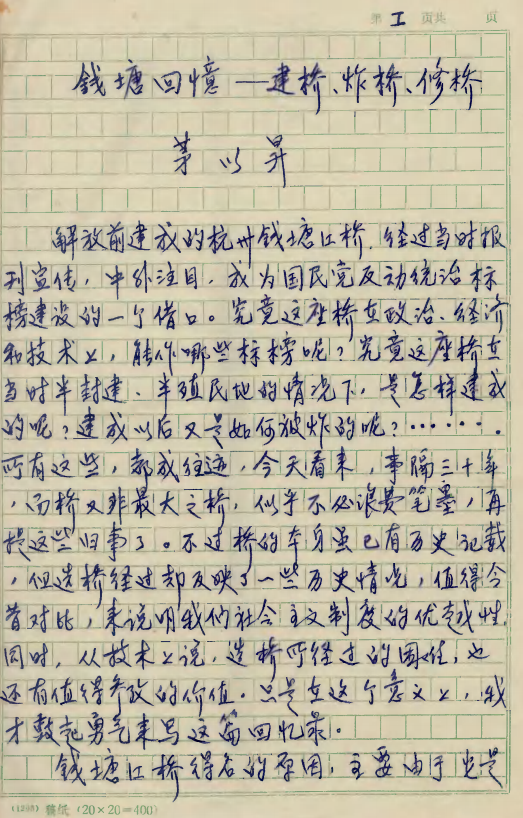 第 1 页共 页
钱塘回憶——建桥、炸桥、修桥
茅以昇
解放前建成的杭州钱塘江桥,经过当时报
刊宣传,中外注目,成为国民党反动统治标
榜建设的一个借口。究竟这座桥在政治、经济
和技术上,能作哪些标榜呢?究竟这座桥在
当时半封建、半殖民地的情况下,是怎样建成
的呢?建成以后又是如何被炸的呢?……
所有这些,都成往迹,今天看来,事隔三十年
,而桥又非最大之桥,似乎不必浪费笔墨,再
提这些旧事了。不过桥的本身虽已有历史记载
,但造桥经过却反映了一些历史情况,值得今
昔对比,来说明我们社会主义制度的优越性,
同时,从技术上说,造桥所经过的困难,也
还有值得参考的价值。只是在这个意义上,我
才鼓起勇气来写这篇回忆录。
钱塘江桥得名的原因,主要由于它是
(1288) 稿纸 (20×20=400)